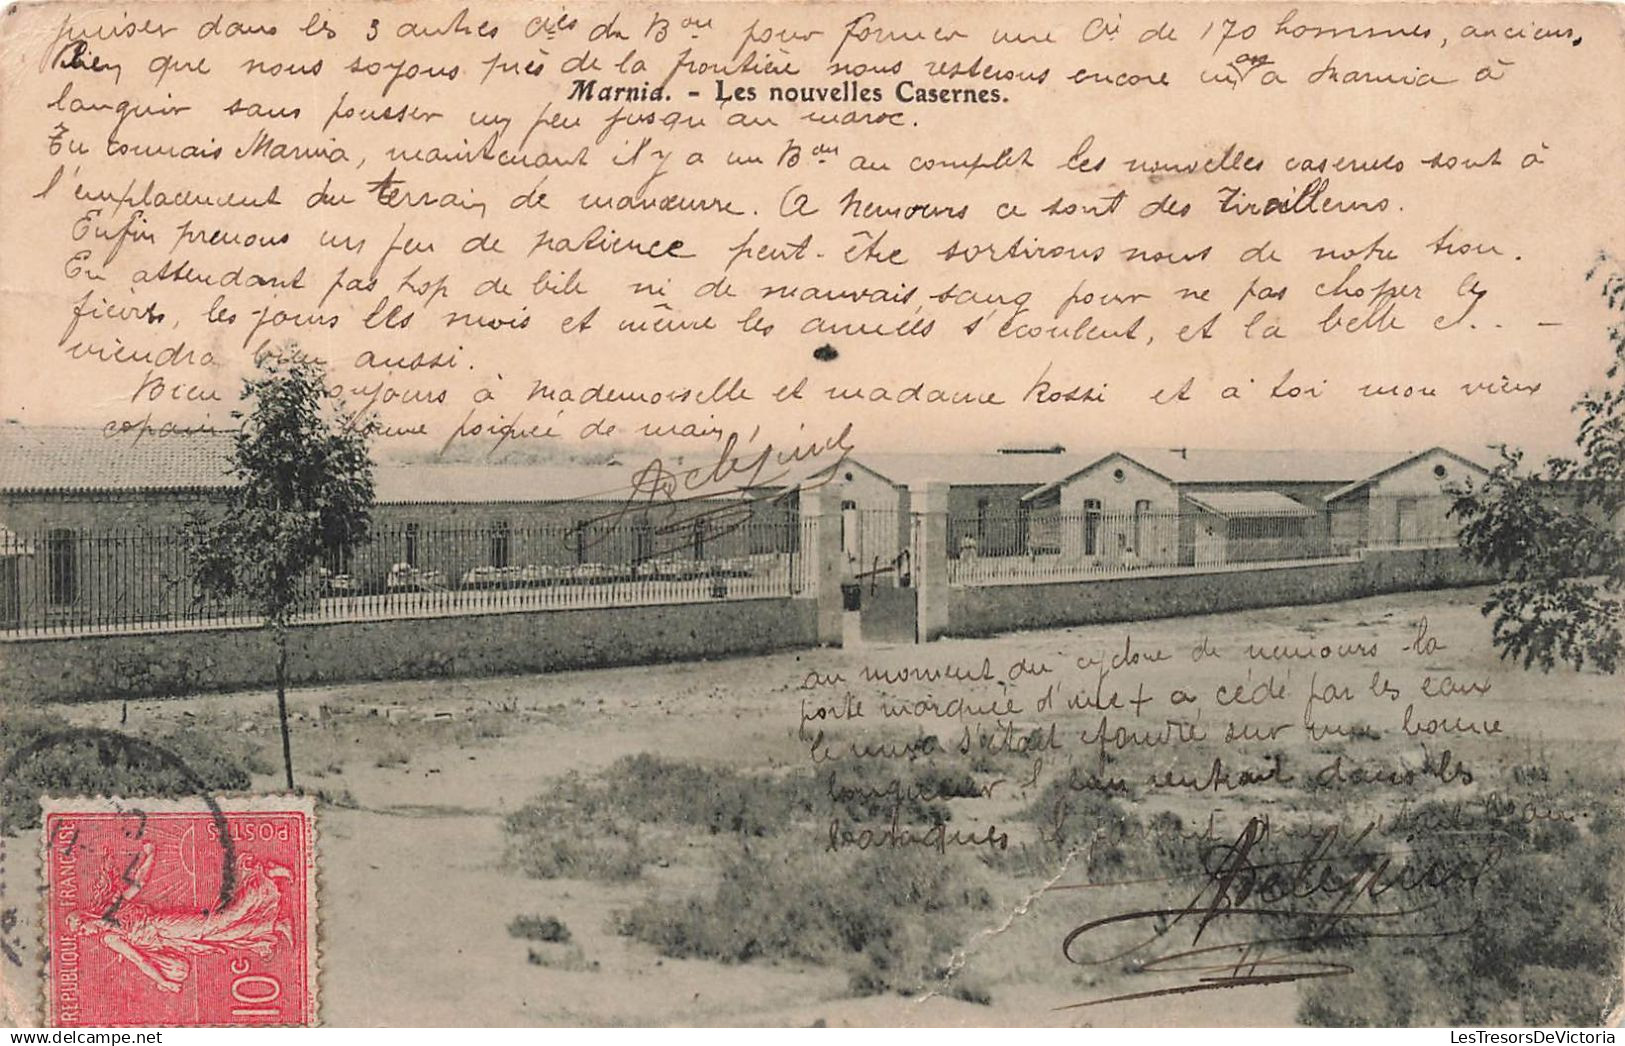 puiser dans les 3 autres Cies du Bon pour former une Cie de 170 hommes, anciens.
Bien que nous soyons près de la frontière nous resterons encore un an a Marnia à
Marnia. - Les nouvelles Casernes.
languir sans pousser un peu jusqu'au maroc.
Tu connais Marnia, maintenant il y a un Bon au complet les nouvelles casernes sont à
l'emplacement du terrain de manœuvre. A Nemours ce sont des Tirailleurs.
Enfin prenons un peu de patience peut-être sortirons nous de notre trou.
En attendant pas trop de bile ni de mauvais sang pour ne pas choper les
fièvres, les jours les mois et même les années s'écoulent, et la belle C...-
viendra bien aussi.
Bien toujours à Mademoiselle et madame Rossi et à toi mon vieux
copain bonne poignée de main,
au moment du cyclone de nemours la
porte marquée d'une + a cédé par les eaux
le mur s'était éfondré sur une bonne
longueur l'eau rentrait dans les
baraques, il
POSTES
REPUBLIQUE FRANÇAISE
10c
LesTresorsDeVictoria